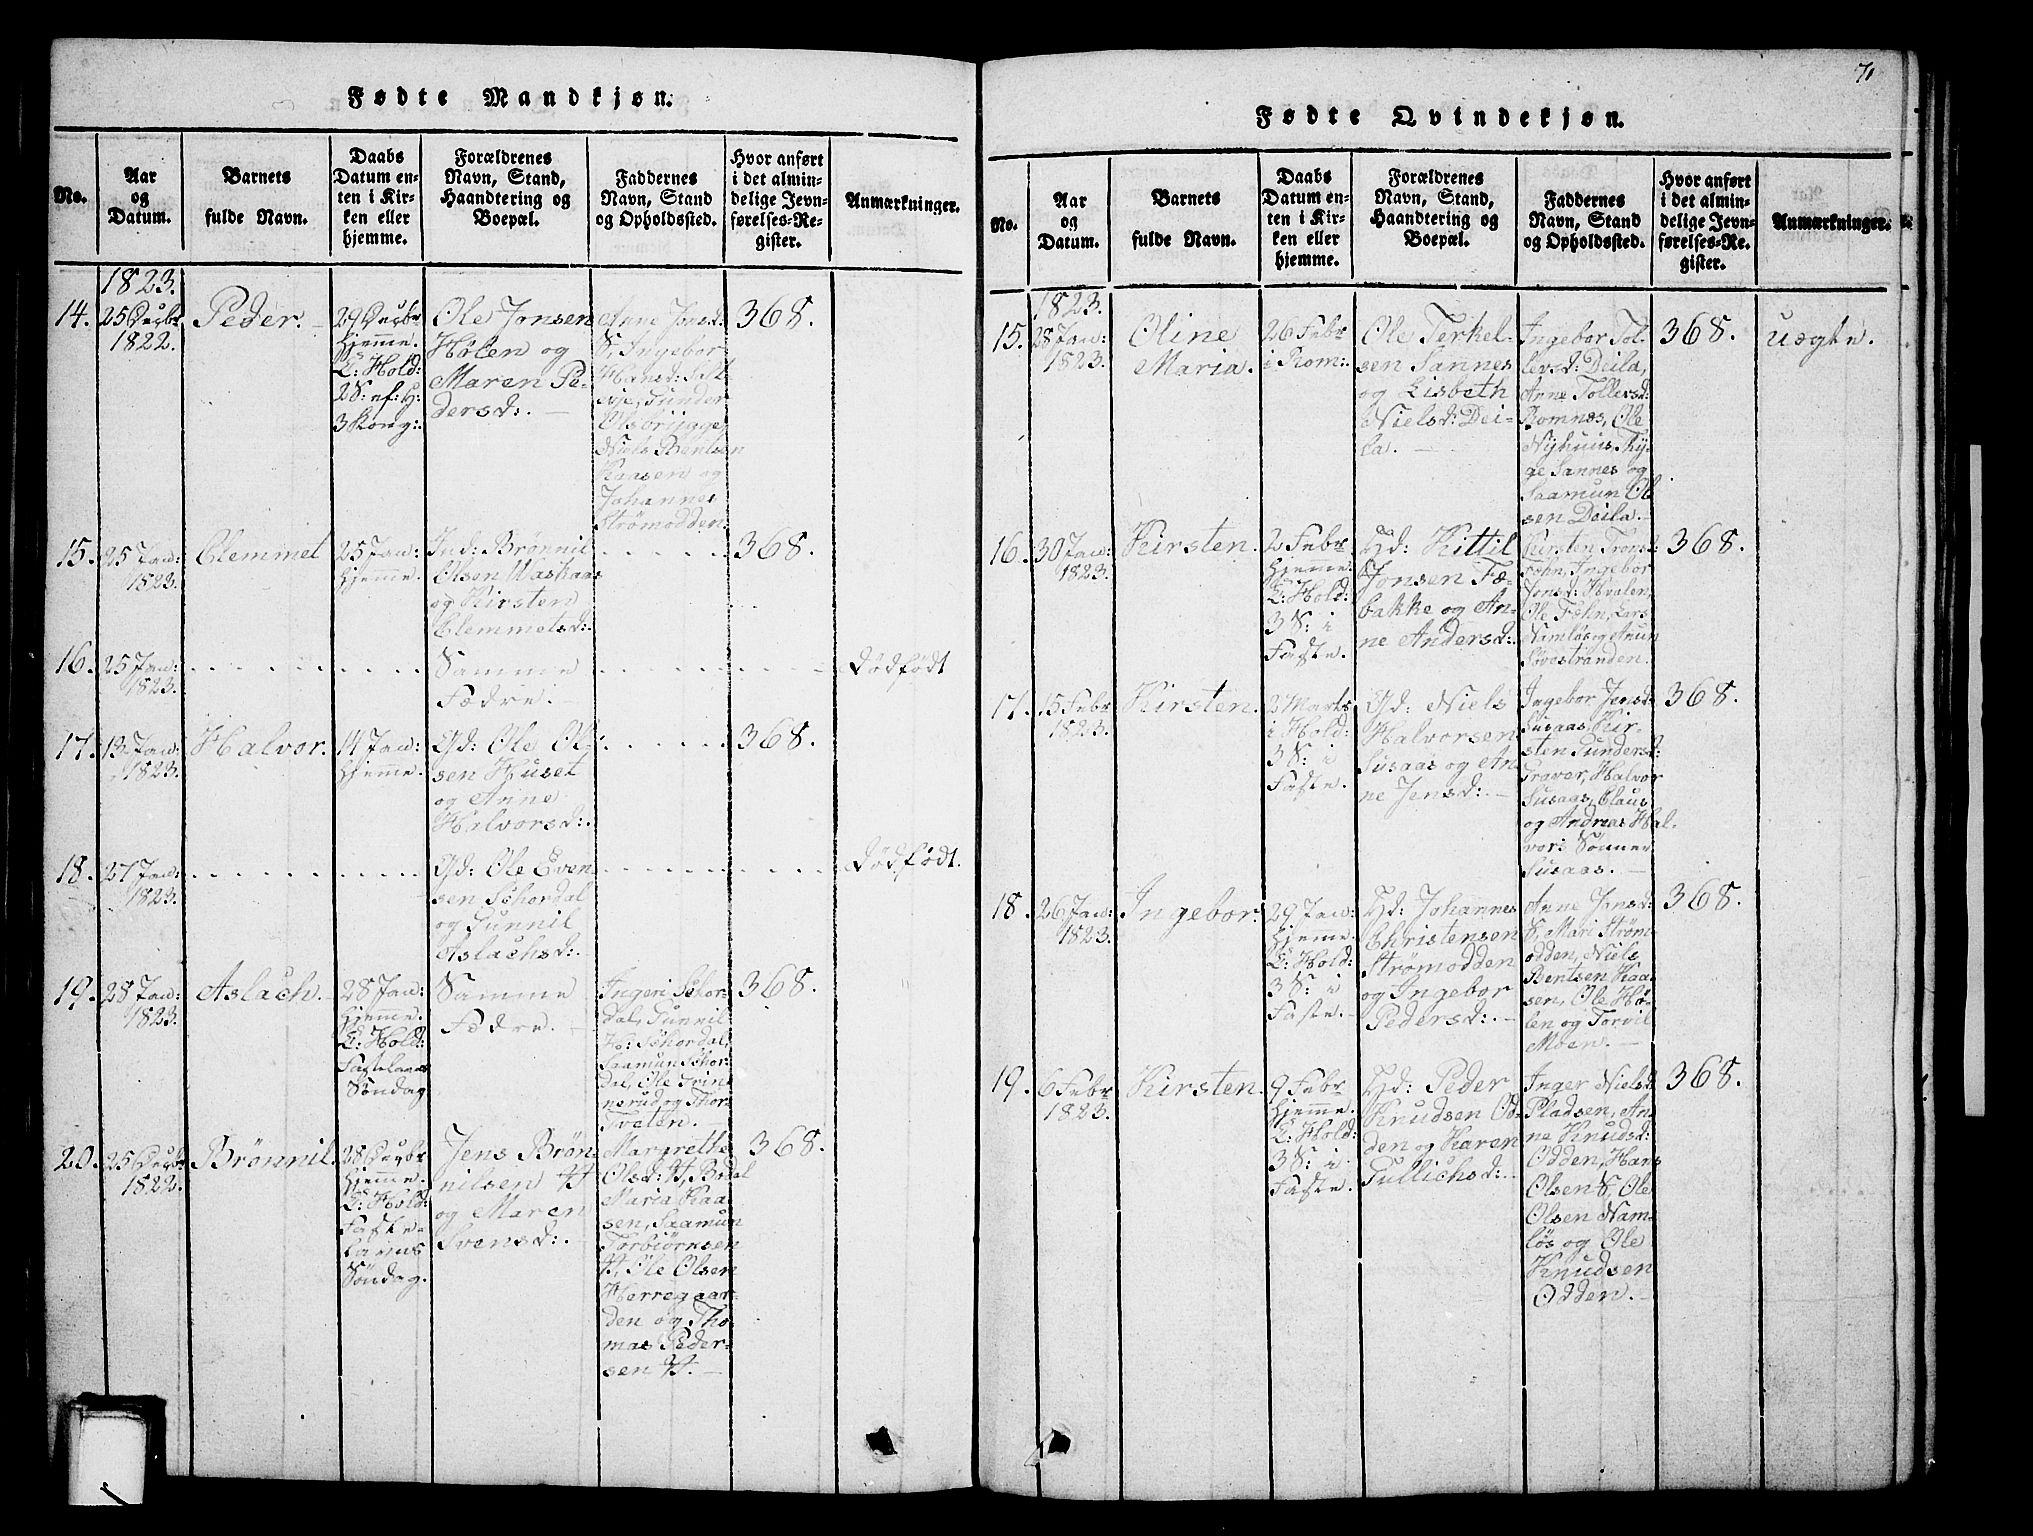 71
Fødte Mandkjøn.
No.
Aar
og
Datum.
Barnets
fulde Navn.
Daabs
Datum en-
ten i Kir-
ken eller
hjemme.
Forældrenes
Navn, Stand,
Haandtering og
Boepæl.
Faddernes
Navn, Stand
og Opholdssted.
Hvor anført
i det almin-
delige Jevn-
førelses-Re-
gister.
Anmærkninger.
1823.
14.
25 Decbr
1822.
Peder.
29 Decbr
hjemme.
E: Hold:
2 S: ef: H:
3 Kong:
Ole Jonsen
Holen og
Maren Pe-
dersd:.
Anne Jonsd:
S, Ingebor
Hansd:
Gunder
Olsbrygge
Niels Bentsen
Kaasen og
Johannes
Strømodden
368.
15.
25 Jan:
1823.
Clemmet
25 Jan:
hjemme.
Ind: Brønnil
Olsen Waskaas
og Kirsten
Clemmetsd:.
368.
16.
25 Jan:
1823.
Samme
Fædre.
Dødfødt
17.
13 Jan:
1823.
Halvor.
14 Jan:
hjemme.
Gd: Ole Ol-
sen Huset
og Anne
Halvorsd:.
368.
18.
27 Jan:
1823.
Gd: Ole Even
sen Schordal
og Gunnil
Aslachsd:.
Dødfødt.
19.
28 Jan:
1823.
Aslach.
28 Jan:
hjemme.
E: Hold:
Fastelavns
Søndag
Samme
Fædre.
Ingeri Schor-
dal, Gunnil
Schordal,
Saamun Schor-
dal, Ole Trin-
nerud og Thor
Tveten.
368.
20.
25 Decbr
1822.
Brønnil.
28 Decbr
hjemme.
E: Hold:
Faste-
lavns
Søndag.
Jens Brøn-
nilsen H
og Maren
Svensd:.
Margrethe
Olsd: H,
Maria Kaa
sen, Saamun
Torbiørnsen
H, Ole Olsen
Herregaar-
den og Tho-
mas Peder-
sen H.
368.
Fødte Qvindekjøn.
No.
Aar
og
Datum.
Barnets
fulde Navn.
Daabs
Datum en-
ten i Kir-
ken eller
hjemme.
Forældrenes
Navn, Stand,
Haandtering og
Boepæl.
Faddernes
Navn, Stand
og Opholdssted.
Hvor anført
i det almin-
delige Jevn-
førelses-Re-
gister.
Anmærkninger.
1823.
15.
28 Jan:
1823.
Oline
Maria.
26 Febr
i Rom:
Ole Terkel-
sen Sannes
og Lisbeth
Nielsd: Dei-
la.
Ingebor Tol-
levsd: Deila,
Anne Tollevsd:
Romnes, Ole
Nyhuus, Thy-
ge Sannes og
Saamun Ol
sen Deila.
368.
uægte.
16.
30 Jan:
1823.
Kirsten.
2 Febr
hjemme.
E: Hold:
3 S: i
Faste.
Hd: Kittil
Jonsen Fæ-
bakke og An-
ne Andersd:.
Kirsten Tronsd:
Fehn, Ingebor
Jonsd: Hvalen,
Ole Fehn, Lars
Namløs og Anun
Søvestranden.
368.
17.
15 Febr
1823.
Kirsten.
2 Marts
i Hold:
3 S: i
Faste.
Gd: Niels
Halvorsen
Susaas og An-
ne Jensd:.
Ingebor Jensd:
Susaas, Kir-
sten Gundersd:
Graver, Halvor
Susaas, Claus
og Andreas Hal-
vors Sønner
Susaas.
368.
18.
26 Jan:
1823.
Ingebor.
29 Jan:
hjemme.
E: Hold:
3 S: i
Faste.
Hd: Johannes
Christensen
Strømodden
og Ingebor
Pedersd:.
Anne Jonsd:
S, Mari Strøm-
odden, Niels
Bentsen Kaa-
sen, Ole Ho-
len og Torvil
Moen.
368.
19.
6 Febr
1823.
Kirsten.
9 Febr
hjemme.
E: Hold:
3 S: i
Faste.
Hd: Peder
Knudsen Od-
den og Karen
Gullichsd:.
Inger Nielsd:
Pladsen, An-
ne Knudsd:
Odden, Hans
Olsen S, Ole
Olsen Nam-
løs og Ole
Knudsen
Odden.
368.